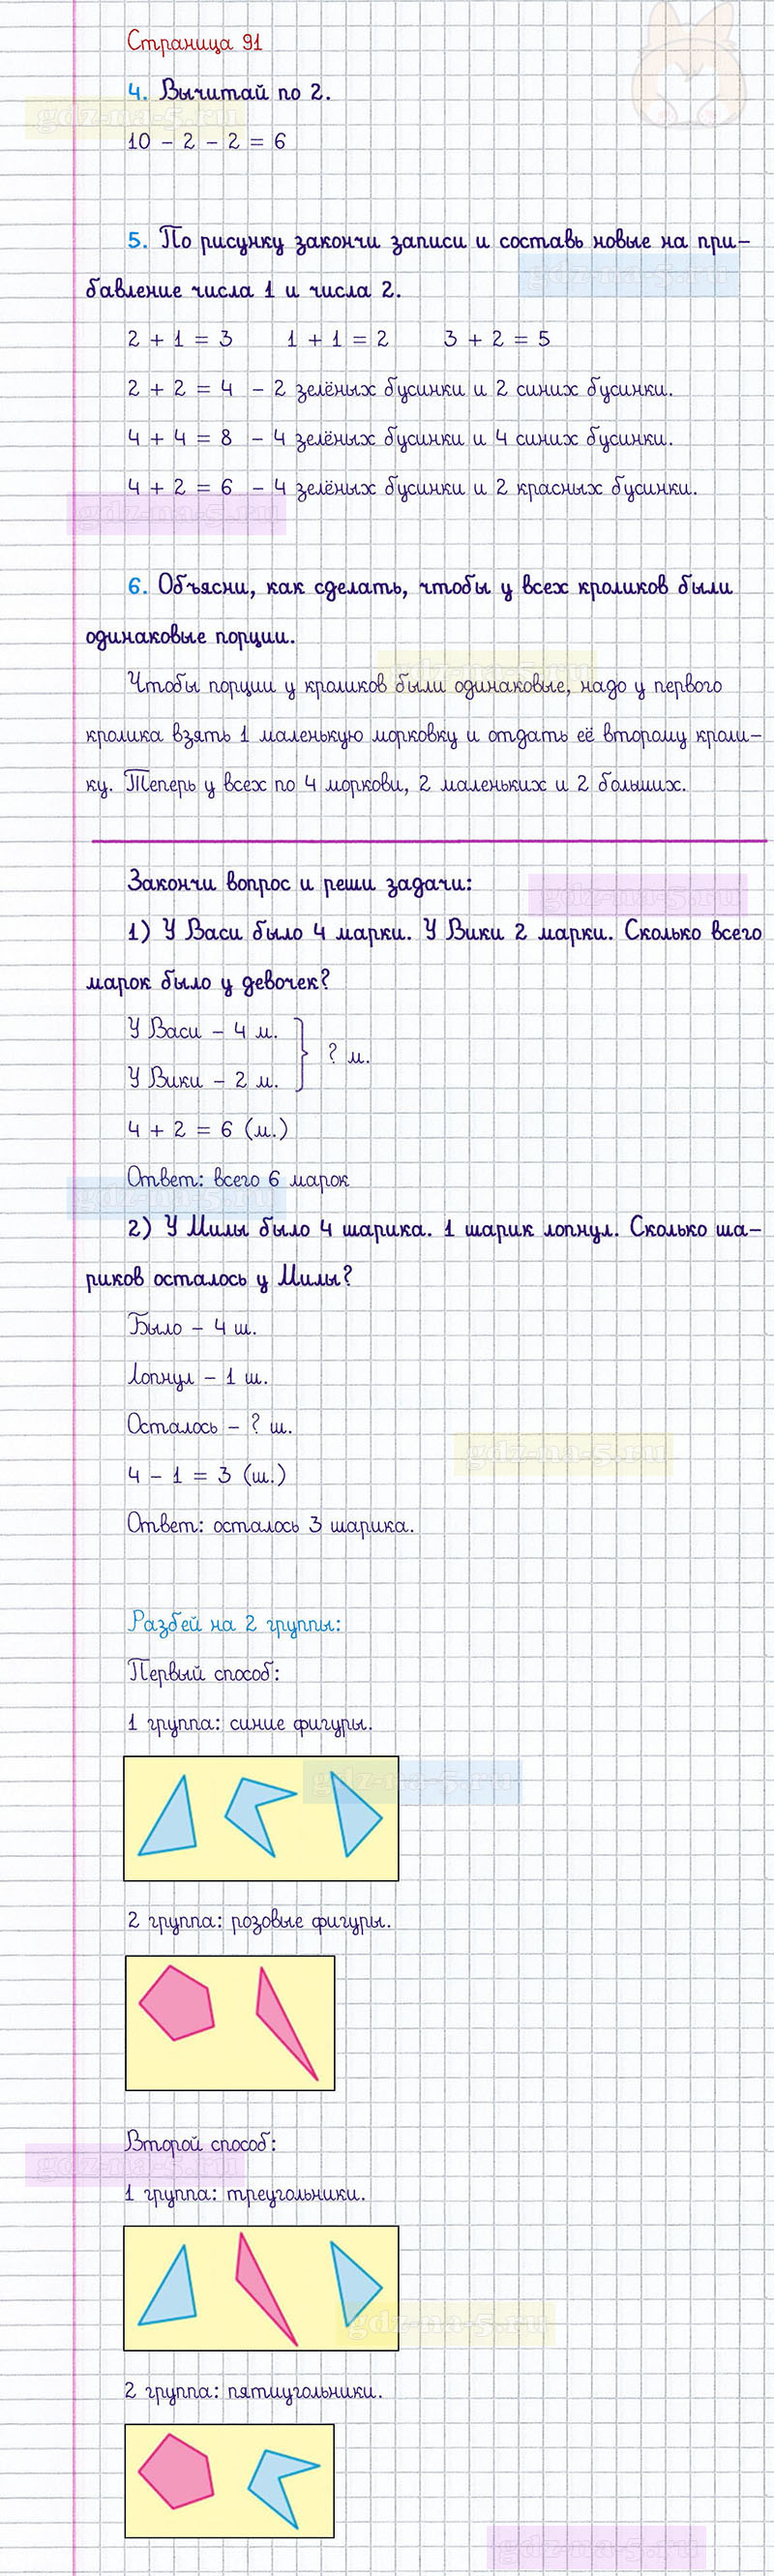 Страница 91
4. Вычитай по 2.
gdz-na-5.ru
10 - 2 - 2 = 6
5. По рисунку закончи записи и составь новые на при-
gdz-na-5.ru
бавление числа 1 и числа 2.
2 + 1 = 3 1 + 1 = 2 3 + 2 = 5
2 + 2 = 4 - 2 зелёных бусинки и 2 синих бусинки.
4 + 4 = 8 - 4 зелёных бусинки и 4 синих бусинки.
4 + 2 = 6 - 4 зелёных бусинки и 2 красных бусинки.
gdz-na-5.ru
6. Объясни, как сделать, чтобы у всех кроликов были
одинаковые порции.
gdz-na-5.ru
Чтобы порции у кроликов были одинаковые, надо у первого
кролика взять 1 маленькую морковку и отдать её второму кроли-
ку. Теперь у всех по 4 моркови, 2 маленьких и 2 больших.
Закончи вопрос и реши задачи:
gdz-na-5.ru
1) У Васи было 4 марки. У Вики 2 марки. Сколько всего
марок было у девочек?
У Васи - 4 м.
? м.
У Вики - 2 м.
4 + 2 = 6 (м.)
Ответ: всего 6 марок
gdz-na-5.ru
2) У Милы было 4 шарика. 1 шарик лопнул. Сколько ша-
риков осталось у Милы?
Было - 4 ш.
Лопнул - 1 ш.
Осталось - ? ш.
gdz-na-5.ru
4 - 1 = 3 (ш.)
Ответ: осталось 3 шарика.
Разбей на 2 группы:
Первый способ:
1 группа: синие фигуры.
gdz-na-5.ru
2 группа: розовые фигуры.
Второй способ:
gdz-na-5.ru
1 группа: треугольники.
gdz-na-5.ru
2 группа: пятиугольники.
gdz-na-5.ru